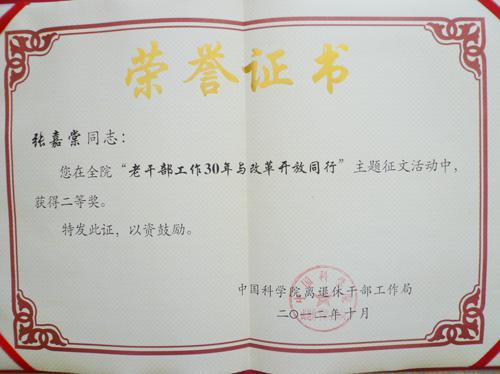 荣誉证书
张嘉棠同志：
您在全院“老干部工作30年与改革开放同行”主题征文活动中，
获得二等奖。
特发此证，以资鼓励。
中国科学院离退休干部工作局
二〇一二年十月